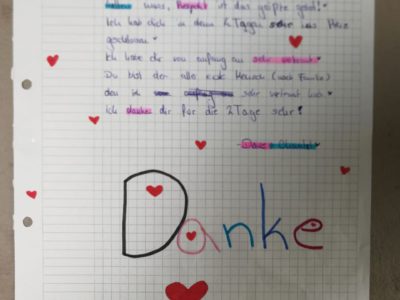 muss, Respekt ist das größte geben!
Ich hab dich in denn 2 Tagen sehr ins Herz
geschlossen
Ich habe dir von anfang an sehr vertraut
Du bist der alle Mensch (nach Familie)
den ich sehr vertraut hab
Ich danke dir für die 2 Tage sehr!
Danke